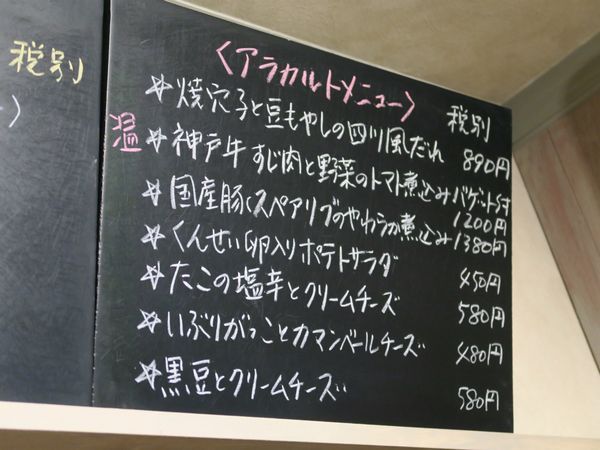 税別
〉
〈アラカルトメニュー〉 税別
温
☆焼穴子と豆もやしの四川風だれ 890円
☆神戸牛すじ肉と野菜のトマト煮込みバゲット付 1200円
☆国産豚(スペアリブ)のやわらか煮込み 1380円
☆くんせい卵入りポテトサラダ 450円
☆たこの塩辛とクリームチーズ 580円
☆いぶりがっことカマンベールチーズ 480円
☆黒豆とクリームチーズ 580円